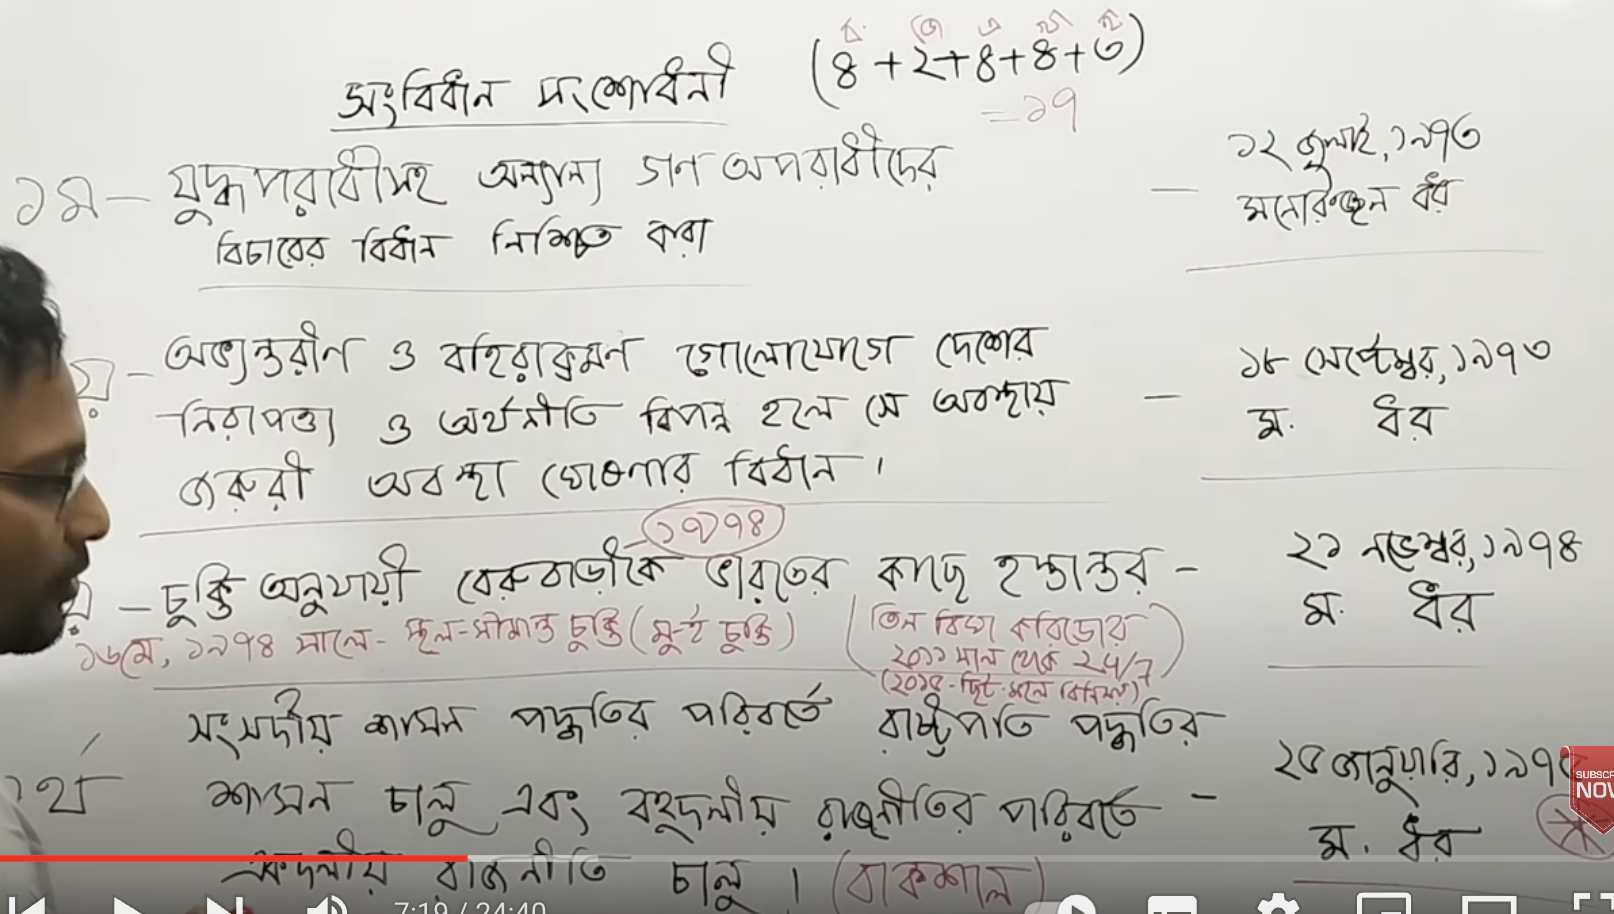 সংবিধান সংশোধনী (৪+২+৪+৪+৩)
=১৭
১ম - যুদ্ধাপরাধীসহ অন্যান্য গণ অপরাধীদের
বিচারের বিধান নিশ্চিত করা
- ১২ জুলাই, ১৯৭৩
মনোরঞ্জন ধর
য় - অভ্যন্তরীণ ও বহিরাক্রমণ গোলোযোগে দেশের
নিরাপত্তা ও অর্থনীতি বিপন্ন হলে সে অবস্থায়
জরুরী অবস্থা ঘোষণার বিধান।
- ১৮ সেপ্টেম্বর, ১৯৭৩
ম. ধর
১৯৭৪
য় - চুক্তি অনুযায়ী বেরুবাড়ীকে ভারতের কাছে হস্তান্তর -
১৬মে, ১৯৭৪ সালে - স্থল-সীমান্ত চুক্তি (মু-ই চুক্তি)
(তিন বিঘা করিডোর
২০১১ সাল থেকে 24/7
২১ নভেম্বর, ১৯৭৪
ম. ধর
র্থ
সংসদীয় শাসন পদ্ধতির পরিবর্তে রাষ্ট্রপতি পদ্ধতির
শাসন চালু এবং বহুদলীয় রাজনীতির পরিবর্তে -
একদলীয় রাজনীতি চালু। (বাকশাল)
২৫ জানুয়ারি, ১৯৭৫
ম. ধর
SUBSCR
NOW
7:19 / 24:40